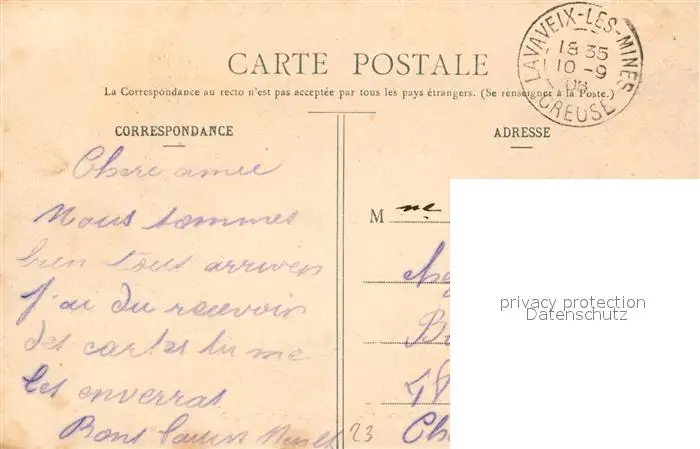 CARTE POSTALE
La Correspondance au recto n'est pas acceptée par tous les pays étrangers. (Se renseigner à la Poste.)
LAVAVEIX-LES-MINES
18 35
10 - 9
CREUSE
CORRESPONDANCE
ADRESSE
Chere amie
Nous sommes
bien tous arrives
J'ai du recevoir
des cartes tu me
les enverras
Bons
23
M me
privacy protection
Datenschutz